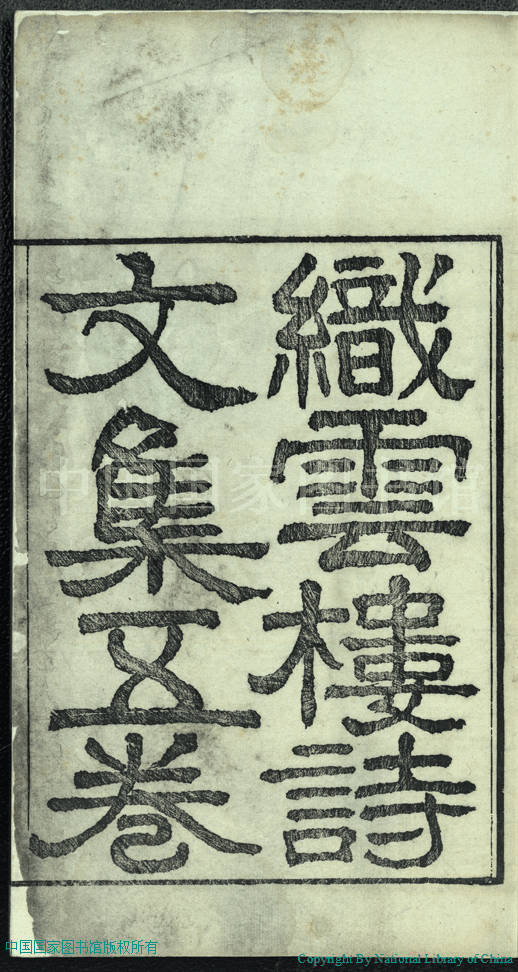 織雲樓詩
文集五卷
中国国家图书馆
中国国家图书馆版权所有
Copyright By National Library of China